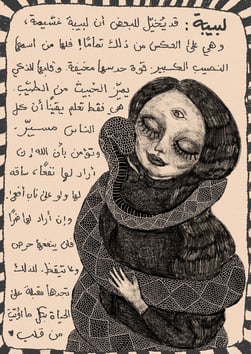 لبيبة : قد يُخيّل للبعض أن لبيبة غشيمة،
وهي على العكس من ذلك تمامًا! فلها من اسمها
النصيب الكبير. قوة حدسها مخيفة. وقلبها الذكي
يميّز الخبيث من الطيّب.
هي فقط تعلم يقينًا أن كل
الناس مسيّر..
وتؤمن بأن الله! إن
أراد لها نفعًا، ساقه
لها ولو على ناب أفعى!
وإن أراد لها ضرًا
فلن ينفعها حرص
ولا تيقظ. لذلك
تجدها مقبلة على
الحياة بكل ما أوتيت
من قلب